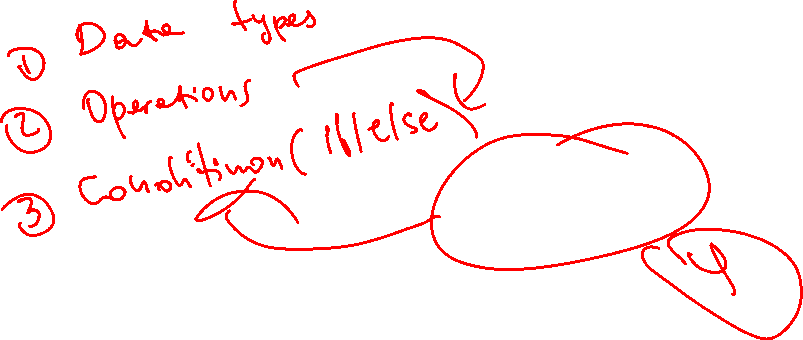 ① Data types
② Operations
③ Conditinon (If/else)
4